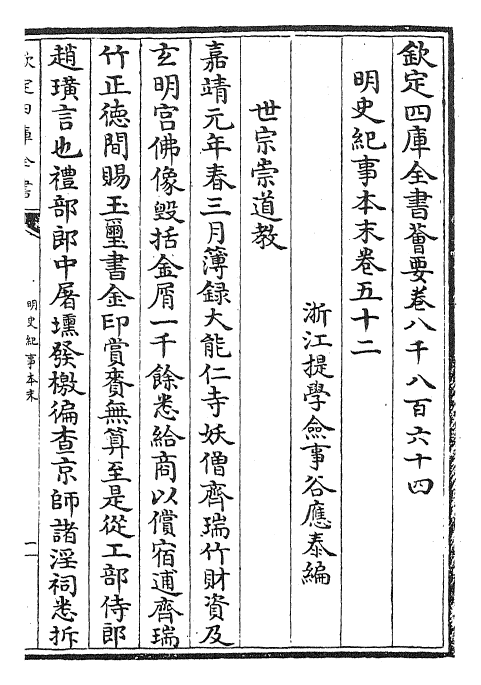 欽定四庫全書薈要卷八千八百六十四
明史紀事本末卷五十二
浙江提學僉事谷應泰編
世宗崇道教
嘉靖元年春三月簿録大能仁寺妖僧齊瑞竹財資及
玄明宮佛像毀括金屑一千餘悉給商以償宿逋齊瑞
竹正德間賜玉璽書金印賞賚無算至是從工部侍郎
趙璜言也禮部郎中屠壎發檄徧查京師諸淫祠悉拆
欽定四庫全書
明史紀事本末
一